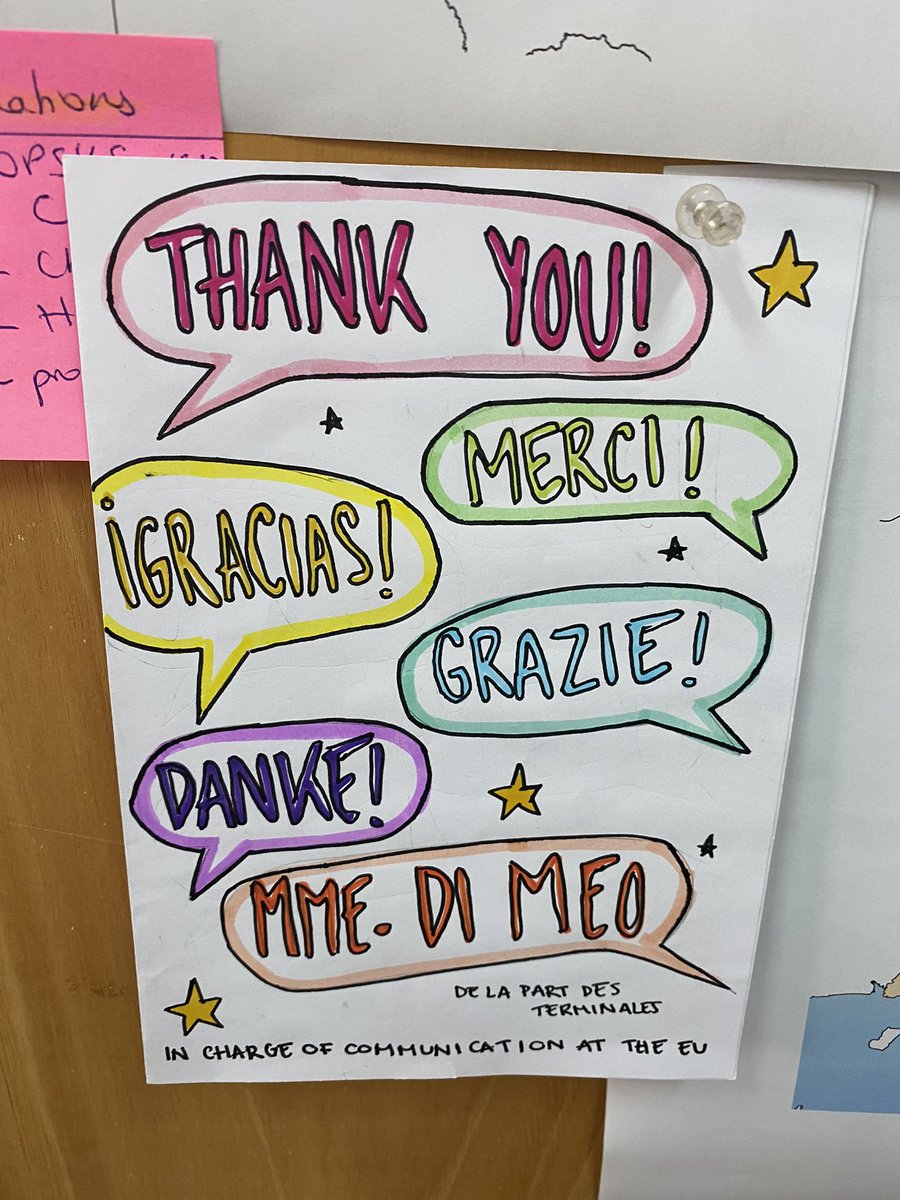 THANK YOU!
MERCI!
¡GRACIAS!
GRAZIE!
DANKE!
MME. DI MEO
DE LA PART DES
TERMINALES
IN CHARGE OF COMMUNICATION AT THE EU